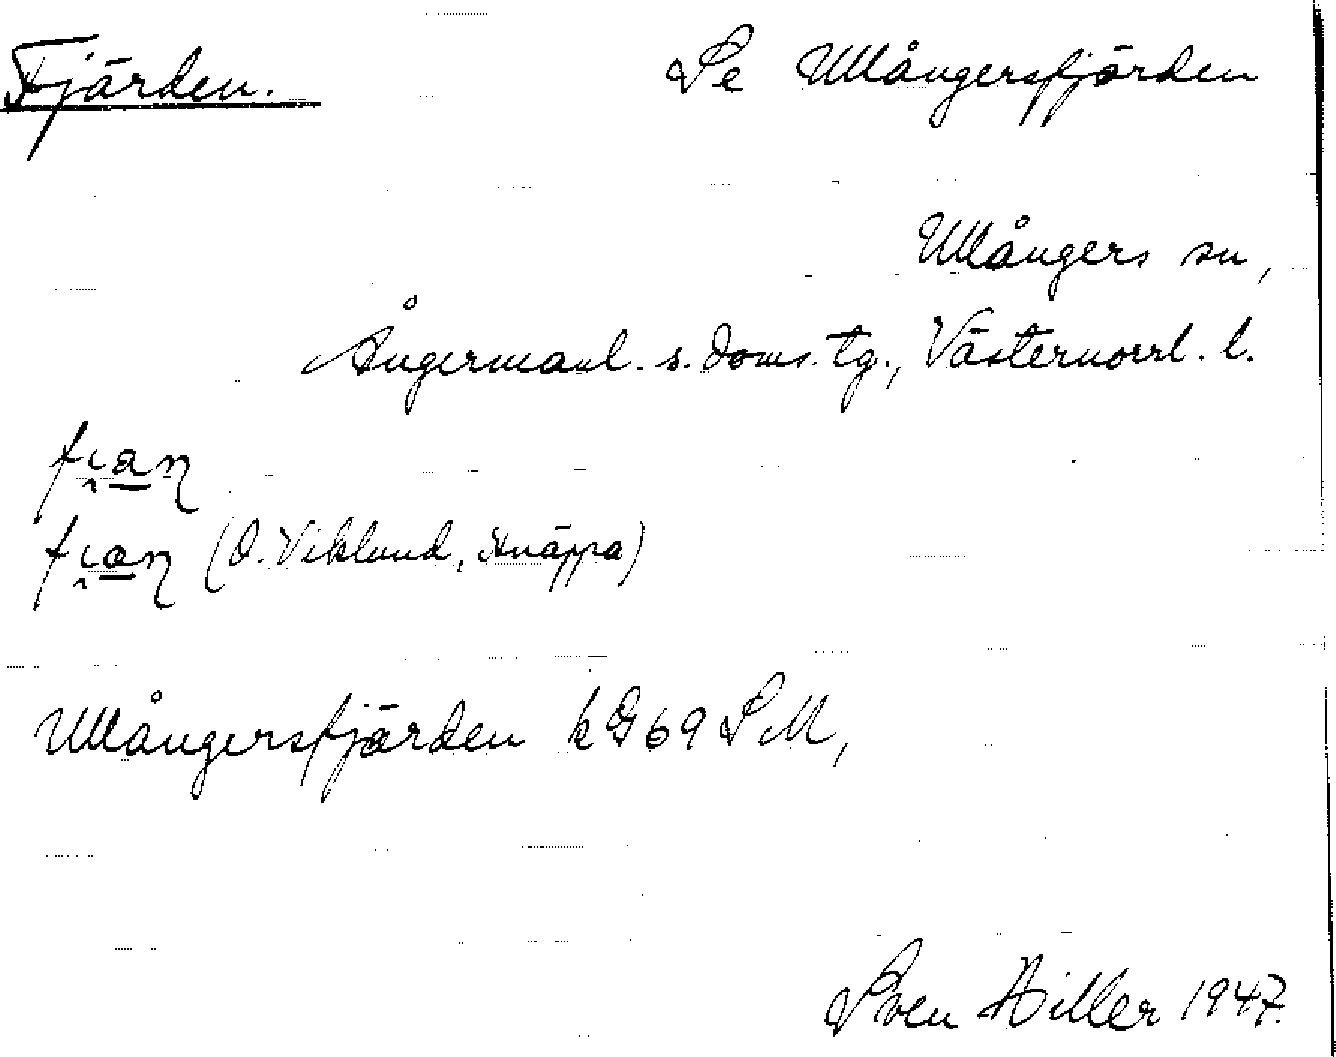 Fjärden. Se Ullångersfjärden
Ullångers sn,
Ångermanl. s. doms. tg., Västernorrl. l.
(O. Viklund, Knäppa)
Ullångersfjärden k G 69 SM,
Sven Hiller 1947.